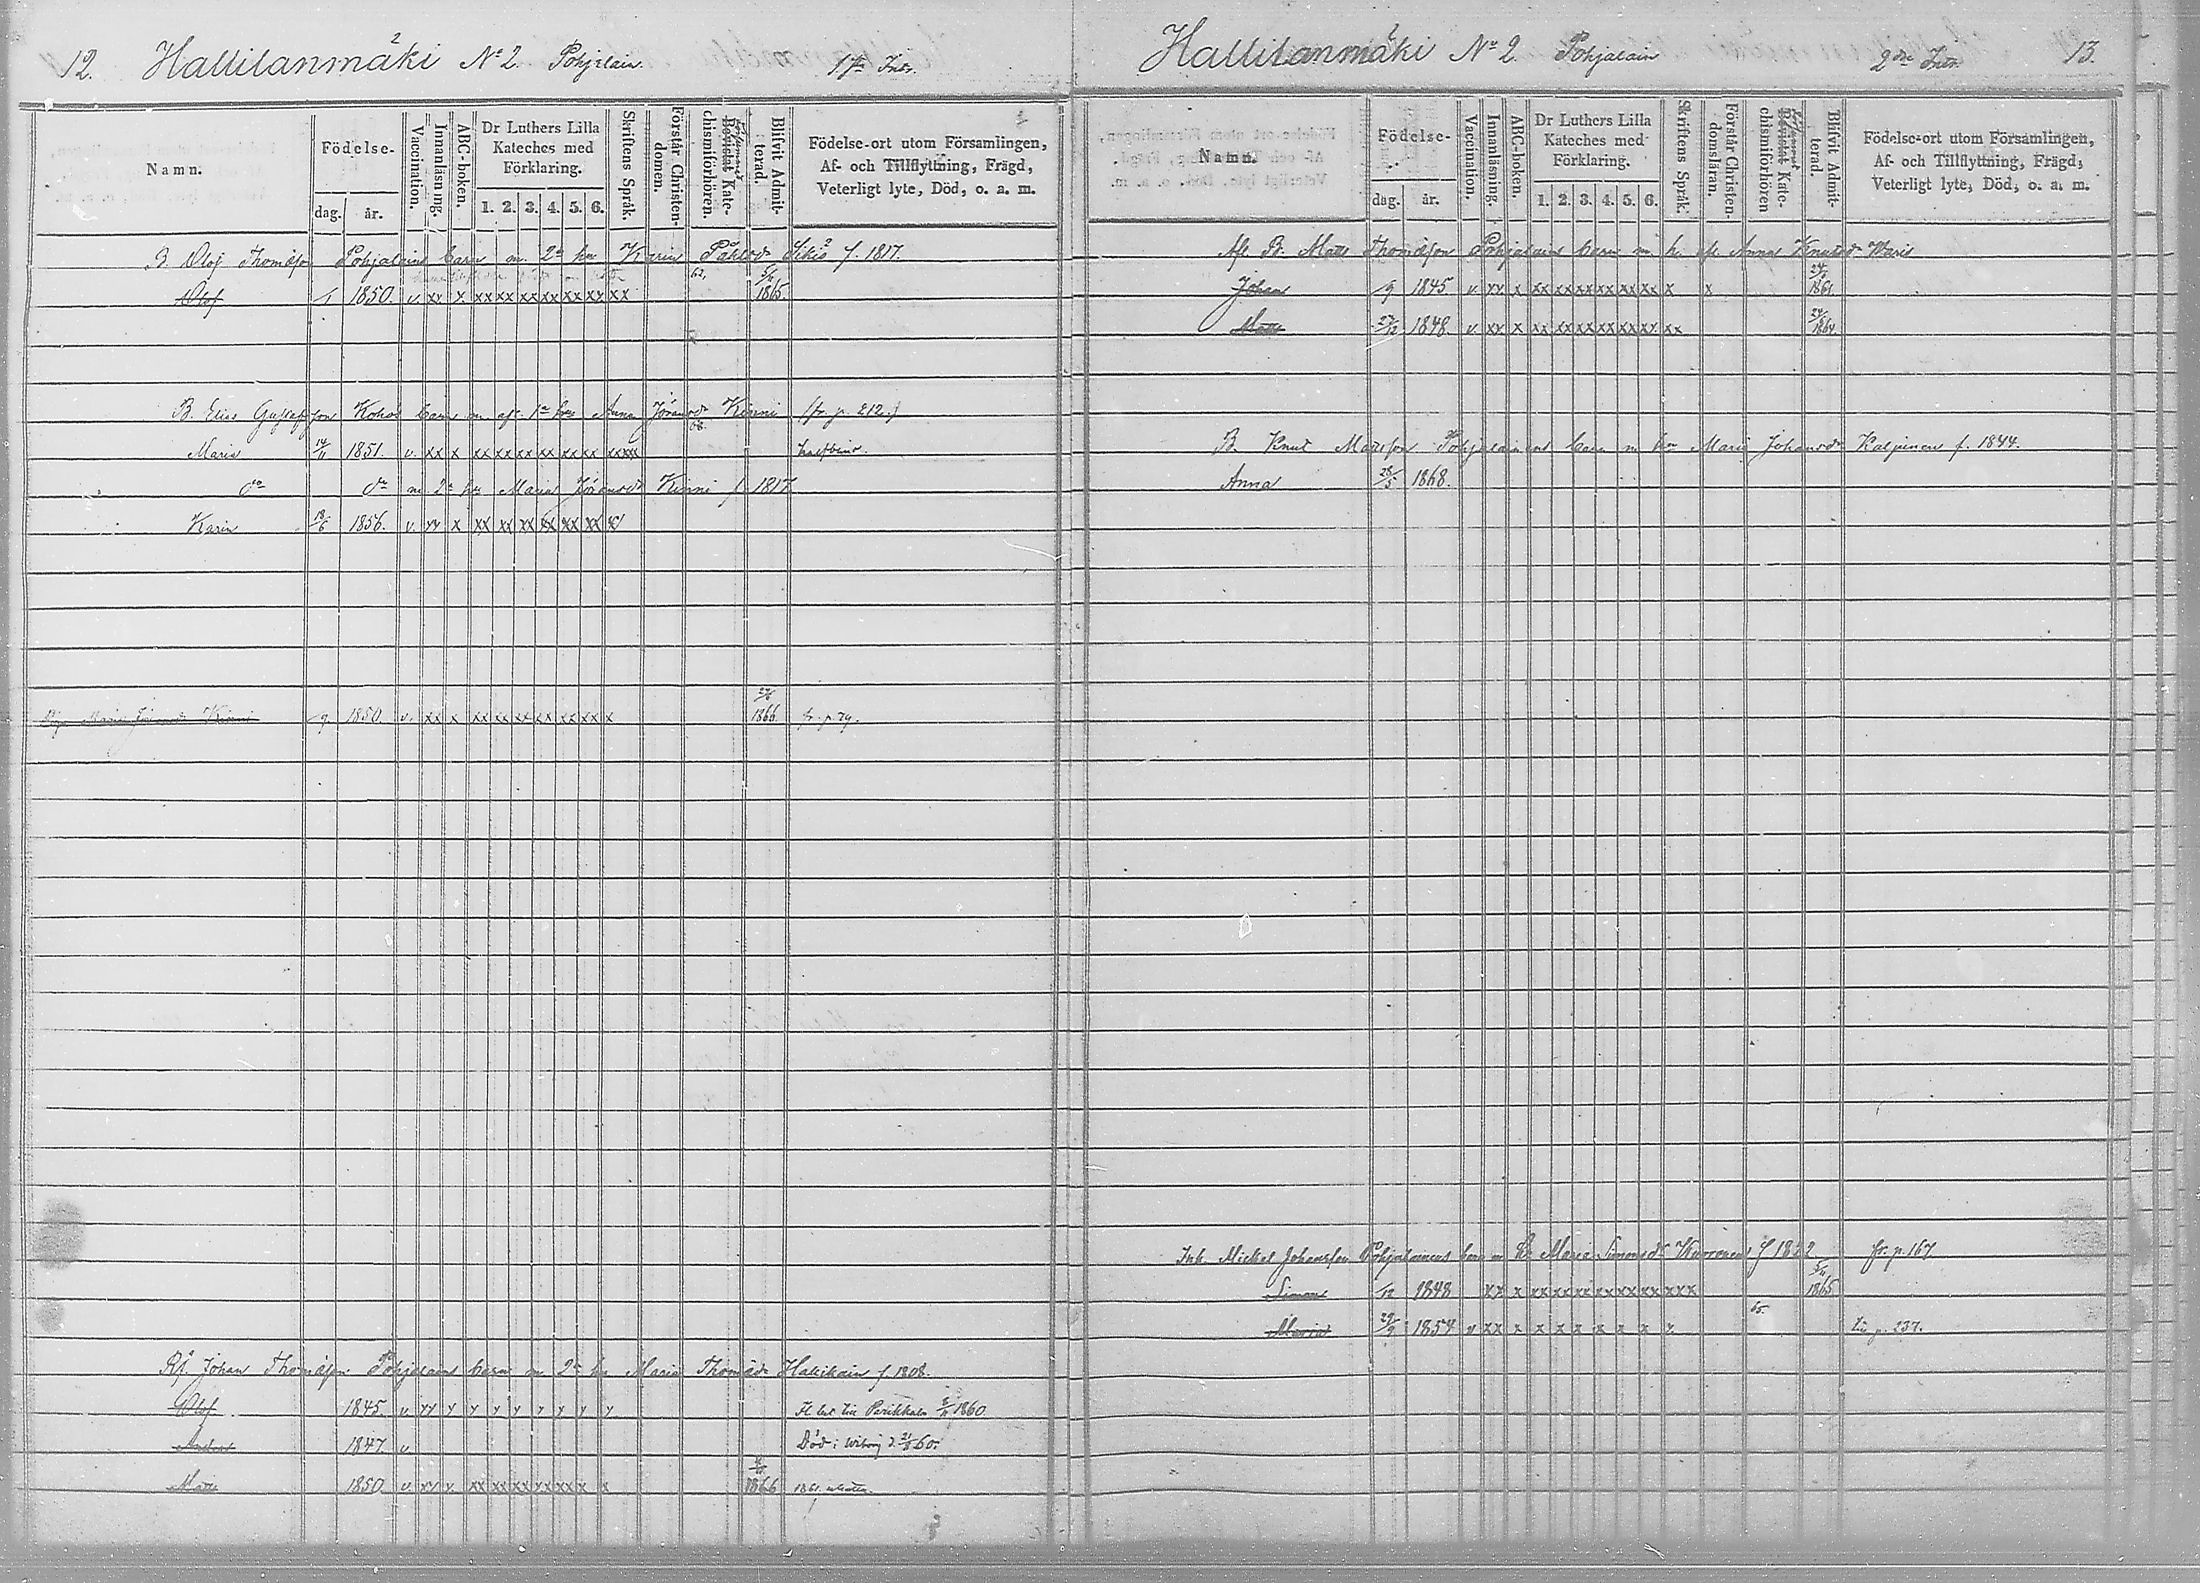 12. Hallilanmäki 2 No 2. Pohjalain. 1sta Intr.
Namn.
Födelse-
dag.
år.
Vaccination.
Innanläsning.
ABC-boken.
Dr Luthers Lilla
Kateches med
Förklaring.
1. 2. 3. 4. 5. 6.
Skriftens Språk.
Förstår Christen-
domen.
Bevistat Kate-
chismiförhören.
Blifvit Admit-
terad.
Födelse-ort utom Församlingen,
Af- och Tillflyttning, Frägd,
Veterligt lyte, Död, o. a. m.
B. Olof Thomasson Pohjalains barn m. 2a hu Karin Påhlsdr f. 1817.
Olof 1850. v. xx x xx xx xx xx xx xx xx 62, 1865.
B. Elias Gustafsson Kohos barn m. afl. 1a hu Anna Göransdr Kinni (fr. p. 212.)
Maria 14/11 1851. v. xx x xx xx xx xx xx xx xxxx
do do m. 2a hu Maria Göransdr Kinni f. 1817
Karin 18/6 1856. v. xx x xx xx xx xx xx xx
Maria Göransdr Kinni 9 1850. v. xx x xx xx xx xx xx xx x 1866. fr. p. 79.
Rf. Johan Thomasson Pohjalains barn m 2a hu Maria Thomasdr Hallikain f. 1808.
Olof 1845. v xx x x x x x x x x Fl. till Parikkala 1860
1847 v Död i Wiborg d. 60.
Matts 1850 v xx x xx xx xx xx xx x x 1866 1861
Hallilanmäki 2 No 2. Pohjalain 2dra Intr. 13.
Namn.
Födelse-
dag.
år.
Vaccination.
Innanläsning.
ABC-boken.
Dr Luthers Lilla
Kateches med
Förklaring.
1. 2. 3. 4. 5. 6.
Skriftens Språk.
Förstår Christen-
domsläran.
Bevistat Kate-
chismiförhören
Blifvit Admit-
terad.
Födelse-ort utom Församlingen,
Af- och Tillflyttning, Frägd,
Veterligt lyte, Död, o. a. m.
Afl. B. Matts Thomasson Pohjalains barn m. h. afl. Anna Knutsdr
Johan 9 1845. v xx x xx xx xx xx xx xx x x 1861.
Matts 27/12 1848. v xx x xx xx xx xx xx xx xx 1864.
B. Knut Mattsson Pohjalainens barn m hu Maria Johansdr Kalpinen f. 1844.
Anna 28/5 1868.
Inh. Michel Johansson Pohjalainens barn m h. Maria Simonsdr f 1822 fr. p. 167
Simon /12 1848 xx x xx xx xx xx xx xx xxx 5/11 1865
Maria 29/9 1854 v xx x x x x x x x x 65. till p. 237.